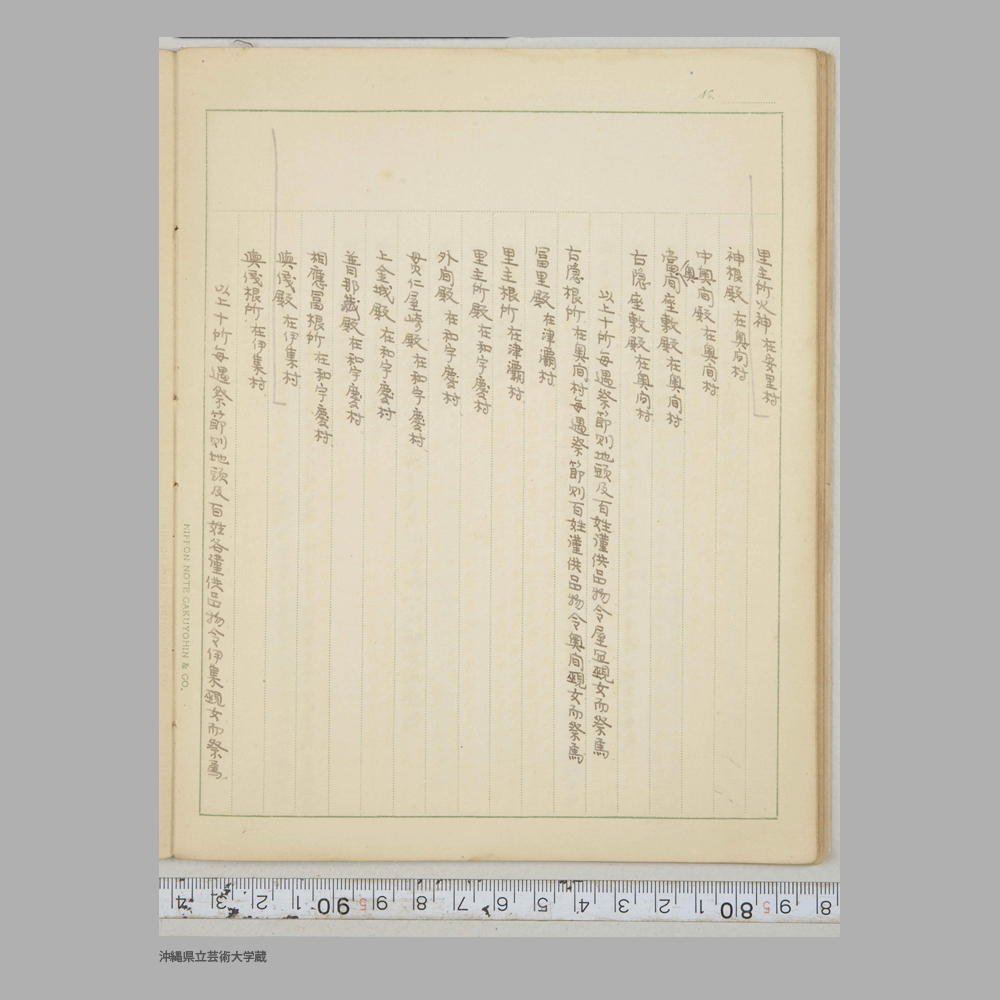 16.
里主所火神 在安里村
神根殿 在奥间村
中奥间殿 在奥间村
當间座敷殿 在奥间村
(奥)
右隠座敷殿 在奥间村
以上十所每遇祭節則地頭及百姓謹供品物令屋宜覡女而祭焉
右隠根所 在奥间村每遇祭節則百姓謹供品物令奥间覡女而祭焉
冨里殿 在津灞村
里主根所 在津灞村
里主所殿 在和宇慶村
外间殿 在和宇慶村
安仁屋崎殿 在和宇慶村
上金城殿 在和宇慶村
普那藏殿 在和宇慶村
相應冨根所 在和宇慶村
與儀殿 在伊集村
與儀根所 在伊集村
以上十所每遇祭節則地頭及百姓各謹供品物令伊集覡女而祭焉
NIPPON NOTE GAKUYOHIN & CO.
4 3 2 1 90 9 5 8 7 6 5 4 3 2 1 80 5 9 8
沖縄県立芸術大学蔵